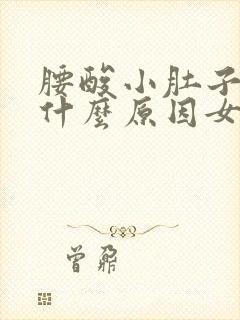 腰酸小肚子
什麼原因女
曾鼐